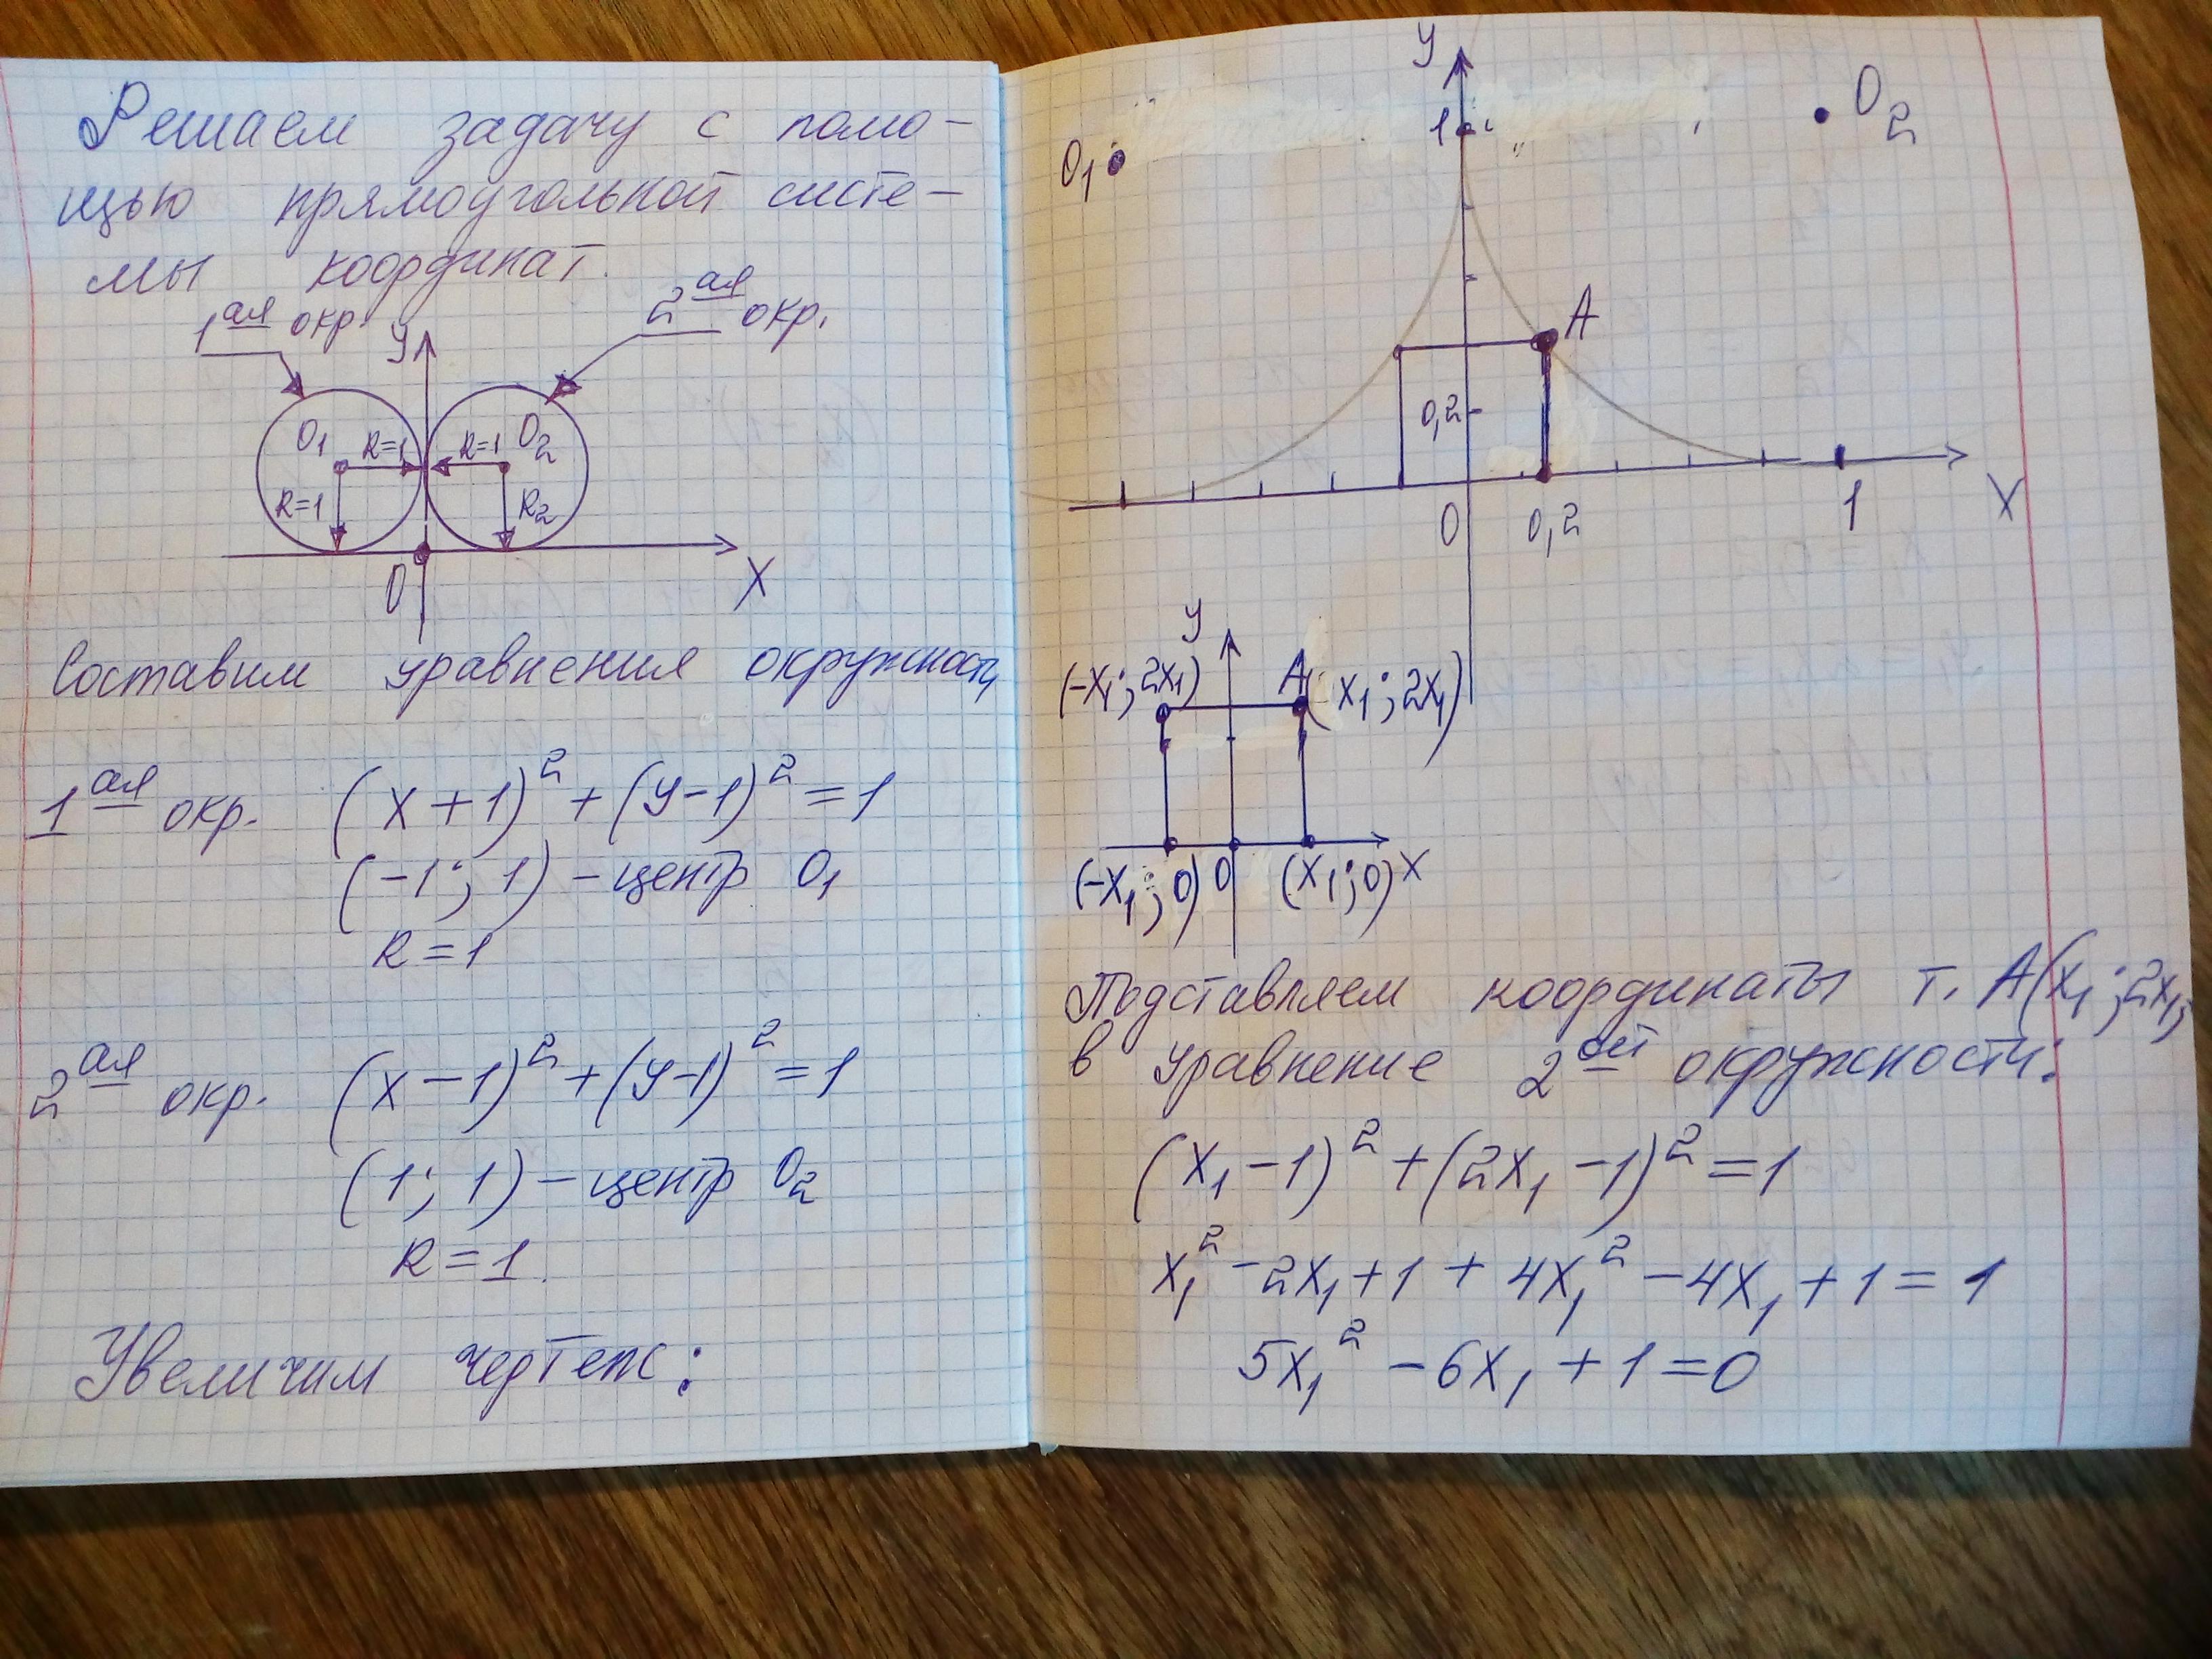 Решаем задачу с помо-
щью прямоугольной систе-
мы координат.
1ая окр.
2ая окр.
У
O1 R=1 R=1 O2
R=1 R2
0
X
Составим уравнения окружности
1ая окр. (x+1)² + (y-1)² = 1
(-1; 1) - центр O1
R=1
2ая окр. (x-1)² + (y-1)² = 1
(1; 1) - центр O2
R=1.
Увеличим чертеж:
У
1
O1
O2
A
0,2
0 0,2 1 X
У
(-x1; 2x1) A(x1; 2x1)
(-x1; 0) 0 (x1; 0) X
Подставляем координаты т. A(x1; 2x1)
в уравнение 2ой окружности:
(x1 - 1)² + (2x1 - 1)² = 1
x1² - 2x1 + 1 + 4x1² - 4x1 + 1 = 1
5x1² - 6x1 + 1 = 0